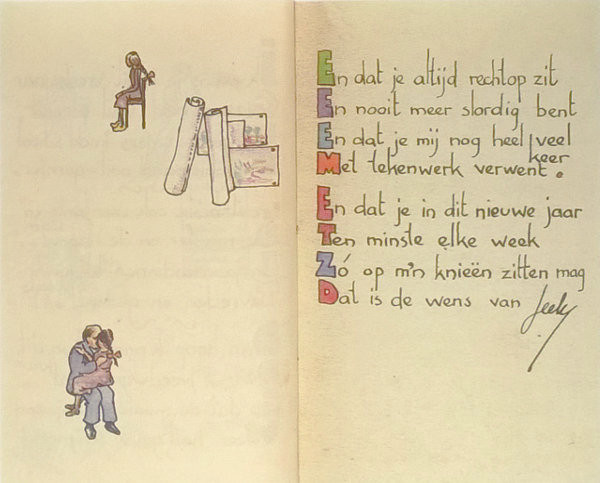 En dat je altijd rechtop zit
En nooit meer slordig bent
En dat je mij nog heel veel keer
Met tekenwerk verwent.
En dat je in dit nieuwe jaar
Ten minste elke week
Zó op m'n knieën zitten mag
Dat is de wens van